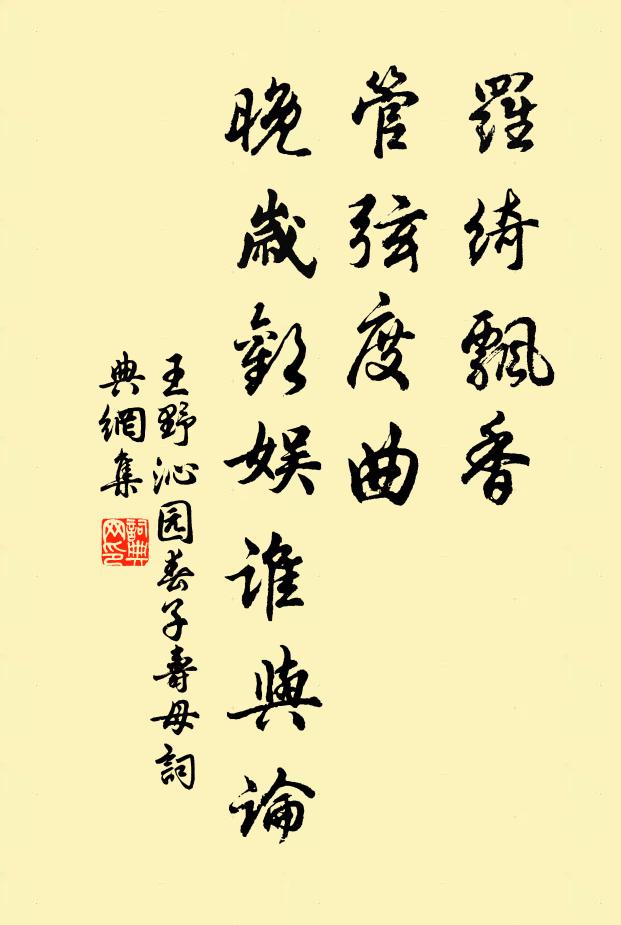 羅綺飄香
管弦度曲
晚歲歡娱誰與論
王野沁园春子壽母詞
典網集
詞典網印